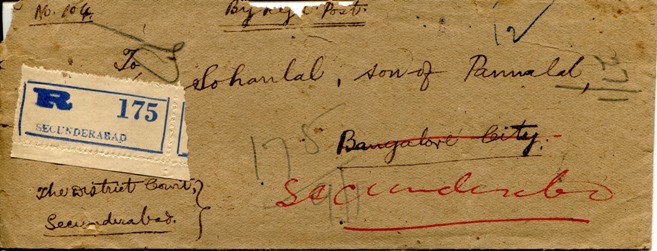 No. 104.
By Regd. Post.
To
Sohanlal, son of Pannalal,
R 175
SECUNDERABAD
Bangalore City.
175
Secunderabad
The District Court,
Secunderabad.